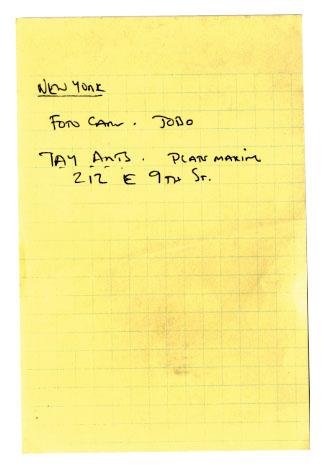 NEW YORK
FOTO CARE. JOBO
TAY ARTS. PLATE MAKING
212 E 9TH ST.